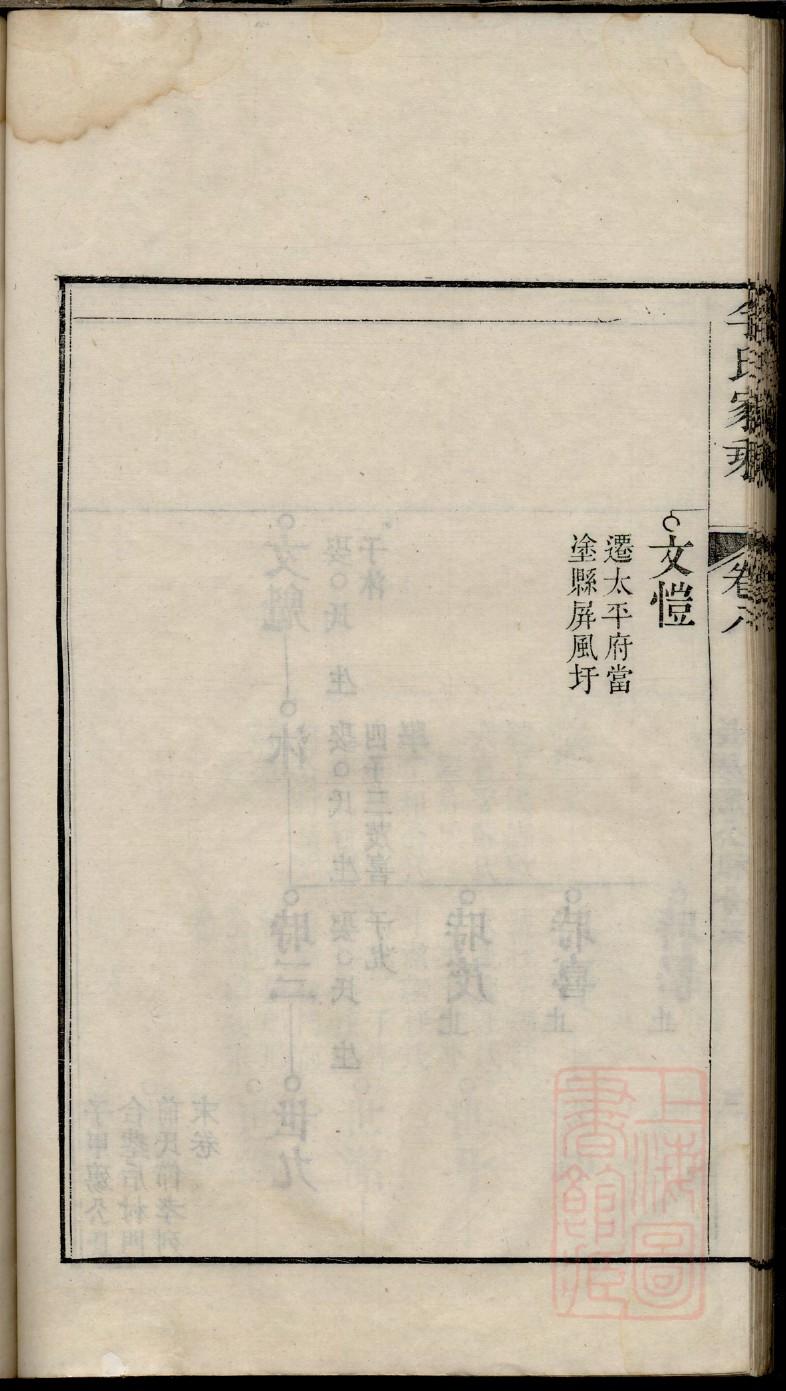 氏家乘
卷八
文愷
遷太平府當
塗縣屏風圩
上海圖
書館藏